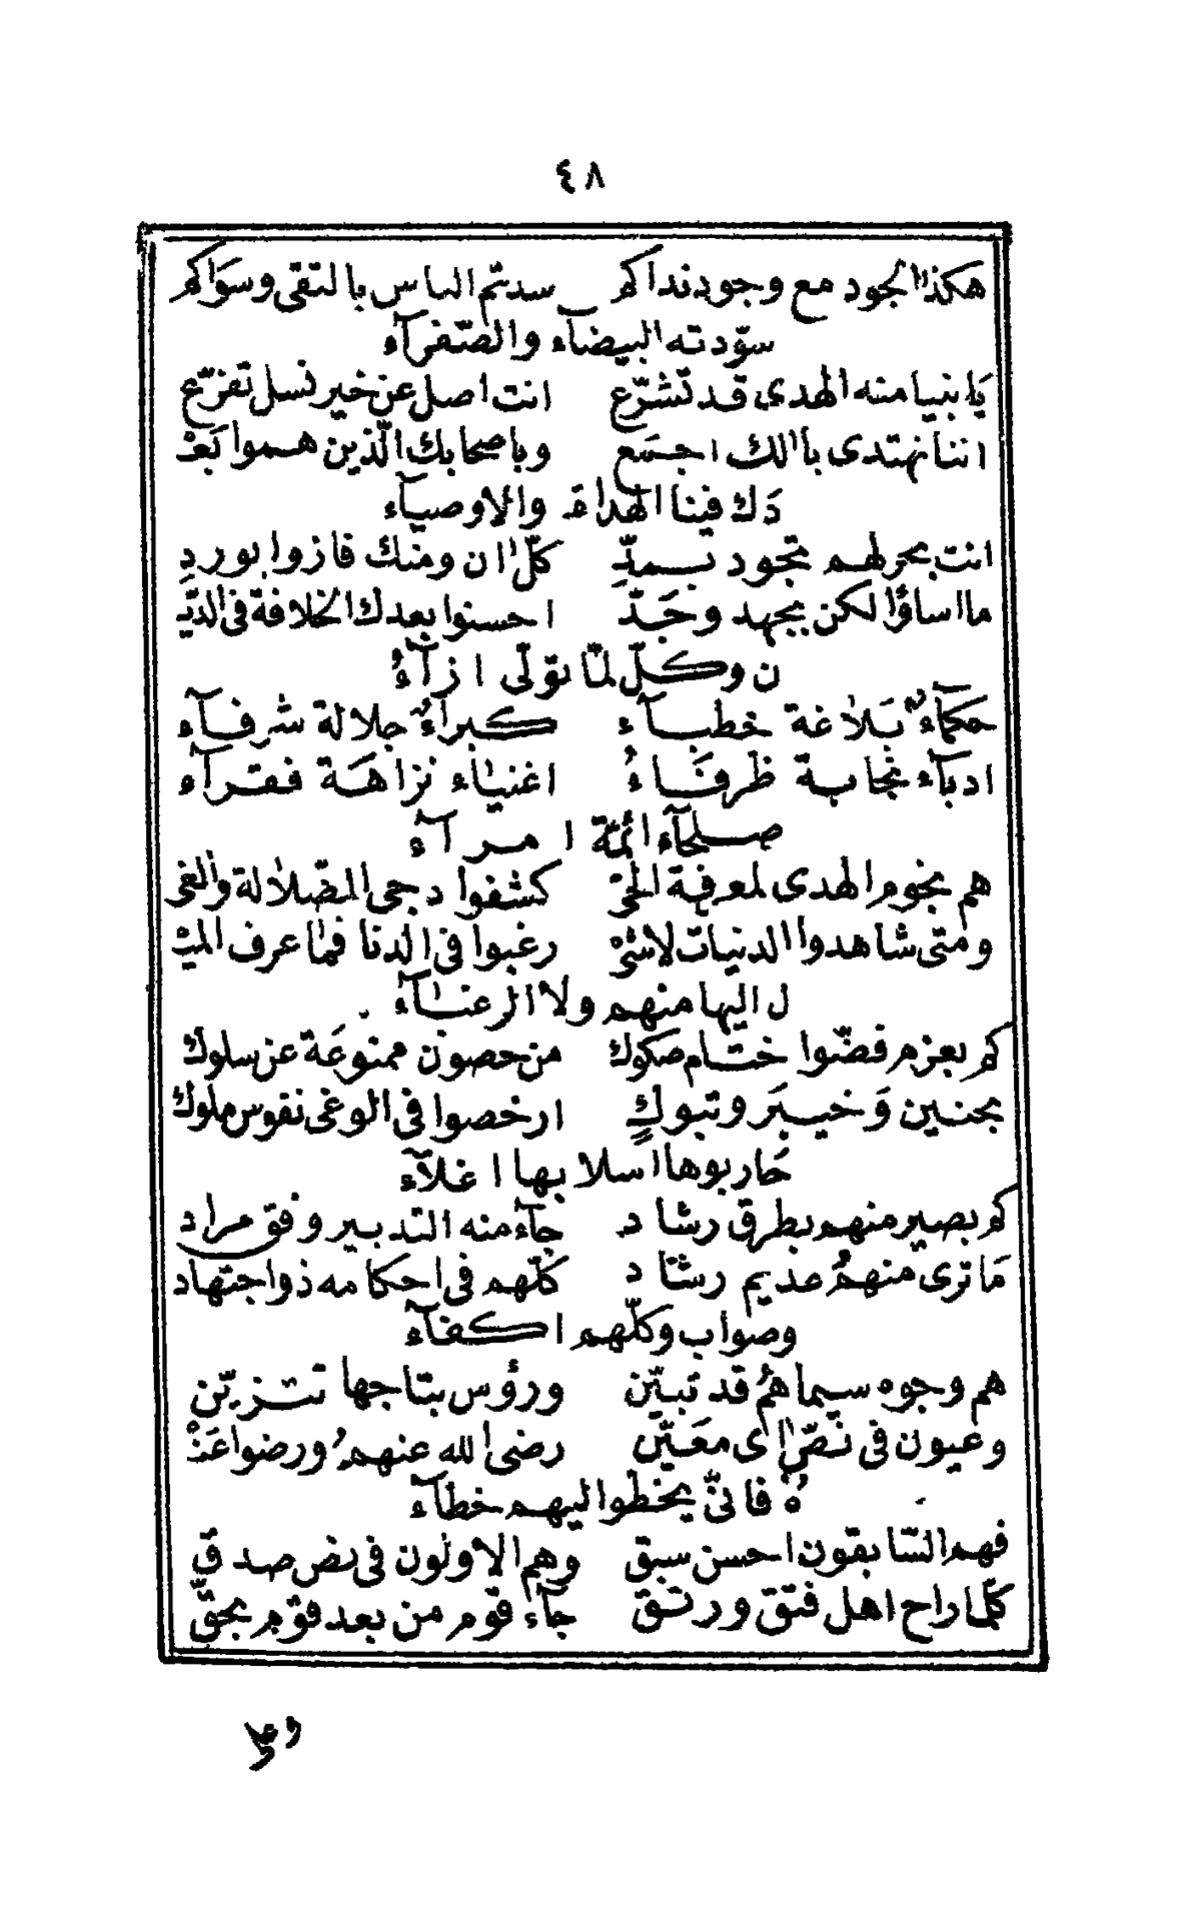 ٤٨
هكذا الجود مع وجود نداكم سدتم الناس بالتقى وسواكم
سوّدته البيضآء والصّفرآء
يا نبيا منه الهدى قد تشرّع انت اصل عن خير نسل تفرّع
اننا نهتدى بالك اجمع وباصحابك الّذين هموا بعْ
دك فينا الهداة والاوصيآء
انت بحر لهم بجود تمدّ كلّ ان ومنك فازوا بورد
ما اساؤا لكن بجهد وجَدّ احسنوا بعدك الخلافة فى الدّيـ
ن وكلّ لمّا تولّى ازآءُ
حكمآءٌ بَلاغة خطبآء كبرآءٌ جلالة شرفآء
ادبآء نجابة ظرفَاءُ اغنيآء نزاهَة فقرآء
صلحآء ائمّة امرآء
هم نجوم الهدى لمعرفة الحىّ كشفوا دجى الضّلالة والغى
ومتى شاهدوا الدنيات لاشىْ رغبوا فى الدنا فما عرف الميْ
ل اليها منهم ولا الرعنبآء
كم بعزم فضّوا ختام صكوك من حصون ممنوعَة عن سلوك
بحنين وَخيبَر وتبوكٍ ارخصوا فى الوغى نفوس ملوك
حَاربوها اسلابها اغلآء
كم بصير منهم بطرق رشاد جآء منه التدبير وفق مراد
مَا ترى منهمُ عديم رشاد كلّهم فى احكامه ذو اجتهاد
وصواب وكلّهم اكفآء
هم وجوه سيماهُم قد تبيّن ورؤس بتاجها تتزيّن
وعيون فى نصّ اى معَيّن رضى الله عنهمُ ورضوا عَنْ
هُ فانىّ يخطوا اليهم خطآء
فهم السّابقون احسن سبق وهم الاولون فى نص صدق
كلّما راح اهل فتق ورتق جآء قوم من بعد قوم بحقّ